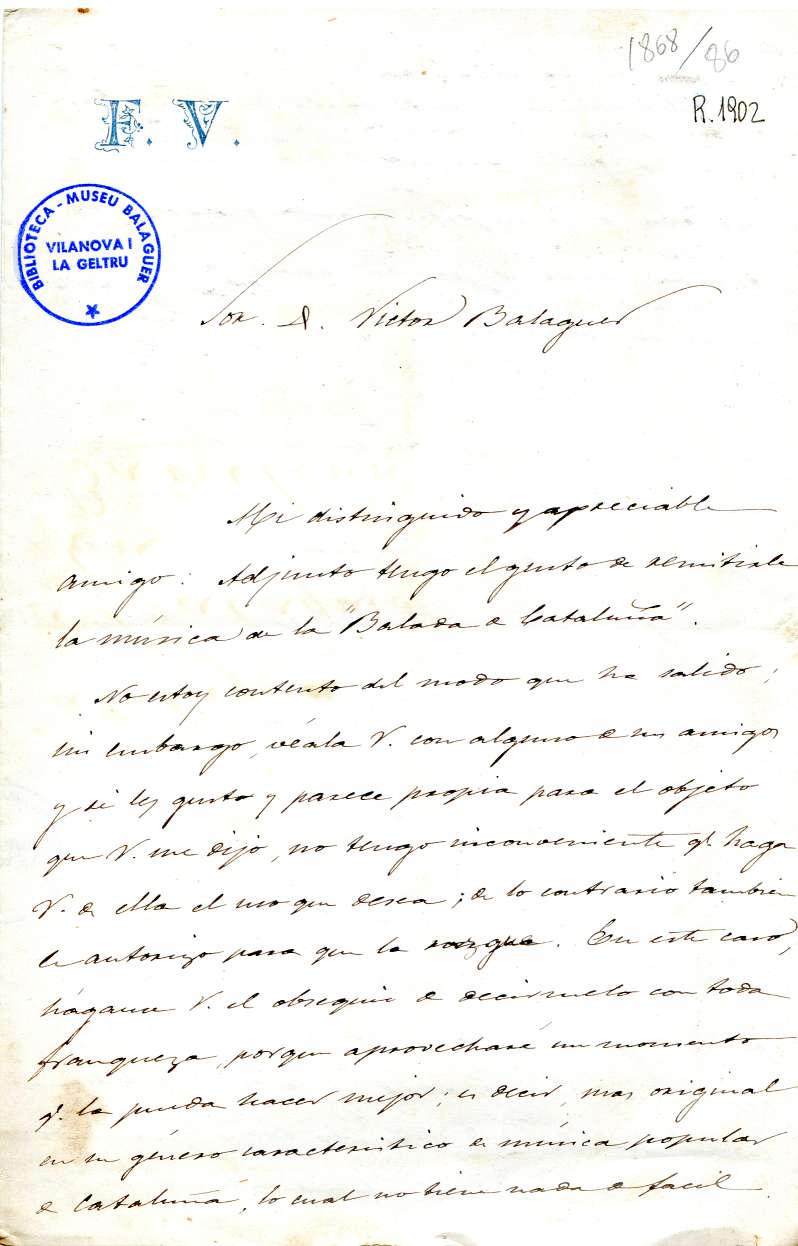 1868/86
R. 1902
F. V.
BIBLIOTECA - MUSEU BALAGUER
VILANOVA I
LA GELTRU
Sor. D. Victor Balaguer
Mi distinguido y apreciable
amigo: Adjunto tengo el gusto de remitirle
la música de la "Balada a Cataluña".
No estoy contento del modo que ha salido;
sin embargo, véala V. con alguno de sus amigos
y si les gusta y parece propia para el objeto
que V. me dijo, no tengo inconveniente qe. haga
V. de ella el uso que desea; de lo contrario tambien
le autorizo para que la rasgue. En este caso,
hágame V. el obsequio de decírmelo con toda
franqueza, porque aprovecharé un momento
qe. la pueda hacer mejor; es decir, mas original
en su género caracteristico de música popular
de Cataluña, lo cual no tiene nada de facil.